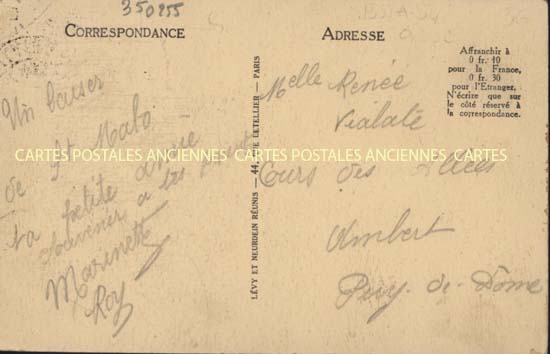 350855
CORRESPONDANCE
ADRESSE
Affranchir à
0 fr. 10
pour la France,
0 fr. 30
pour l'Etranger.
N'écrire que sur
le côté réservé à
la correspondance.
Un baiser
de St Malo
ta petite amie
Souvenir a tes
Marinette
Roy
LÉVY ET NEURDEIN RÉUNIS — 44, RUE LETELLIER — PARIS
Melle Renée
Vialate
Cours des Allées
Ambert
Puy-de-Dôme
CARTES POSTALES ANCIENNES CARTES POSTALES ANCIENNES CARTES